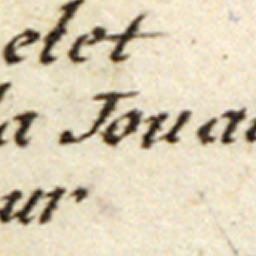 elet
la Joua
ur